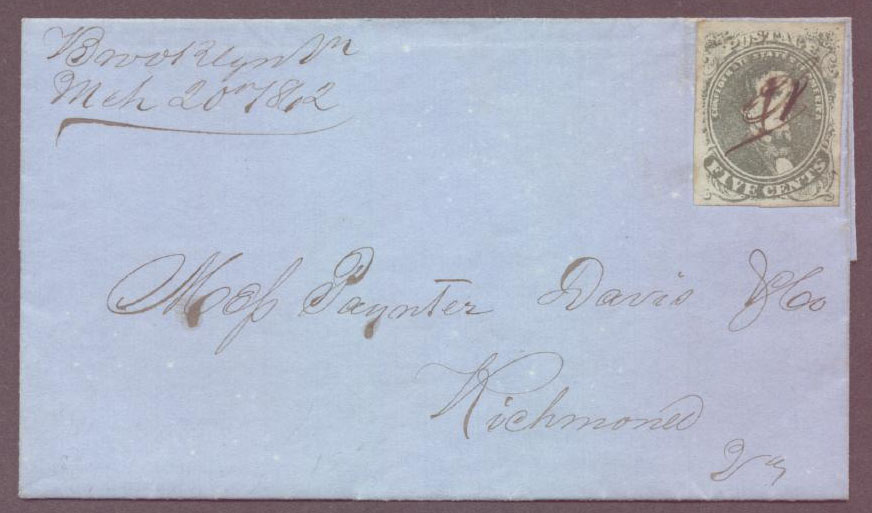 Brooklyn Va
Mch 20th 1862
POSTAGE
CONFEDERATE STATES OF AMERICA
FIVE CENTS
Mess Paynter Davis & Co
Richmond
Va